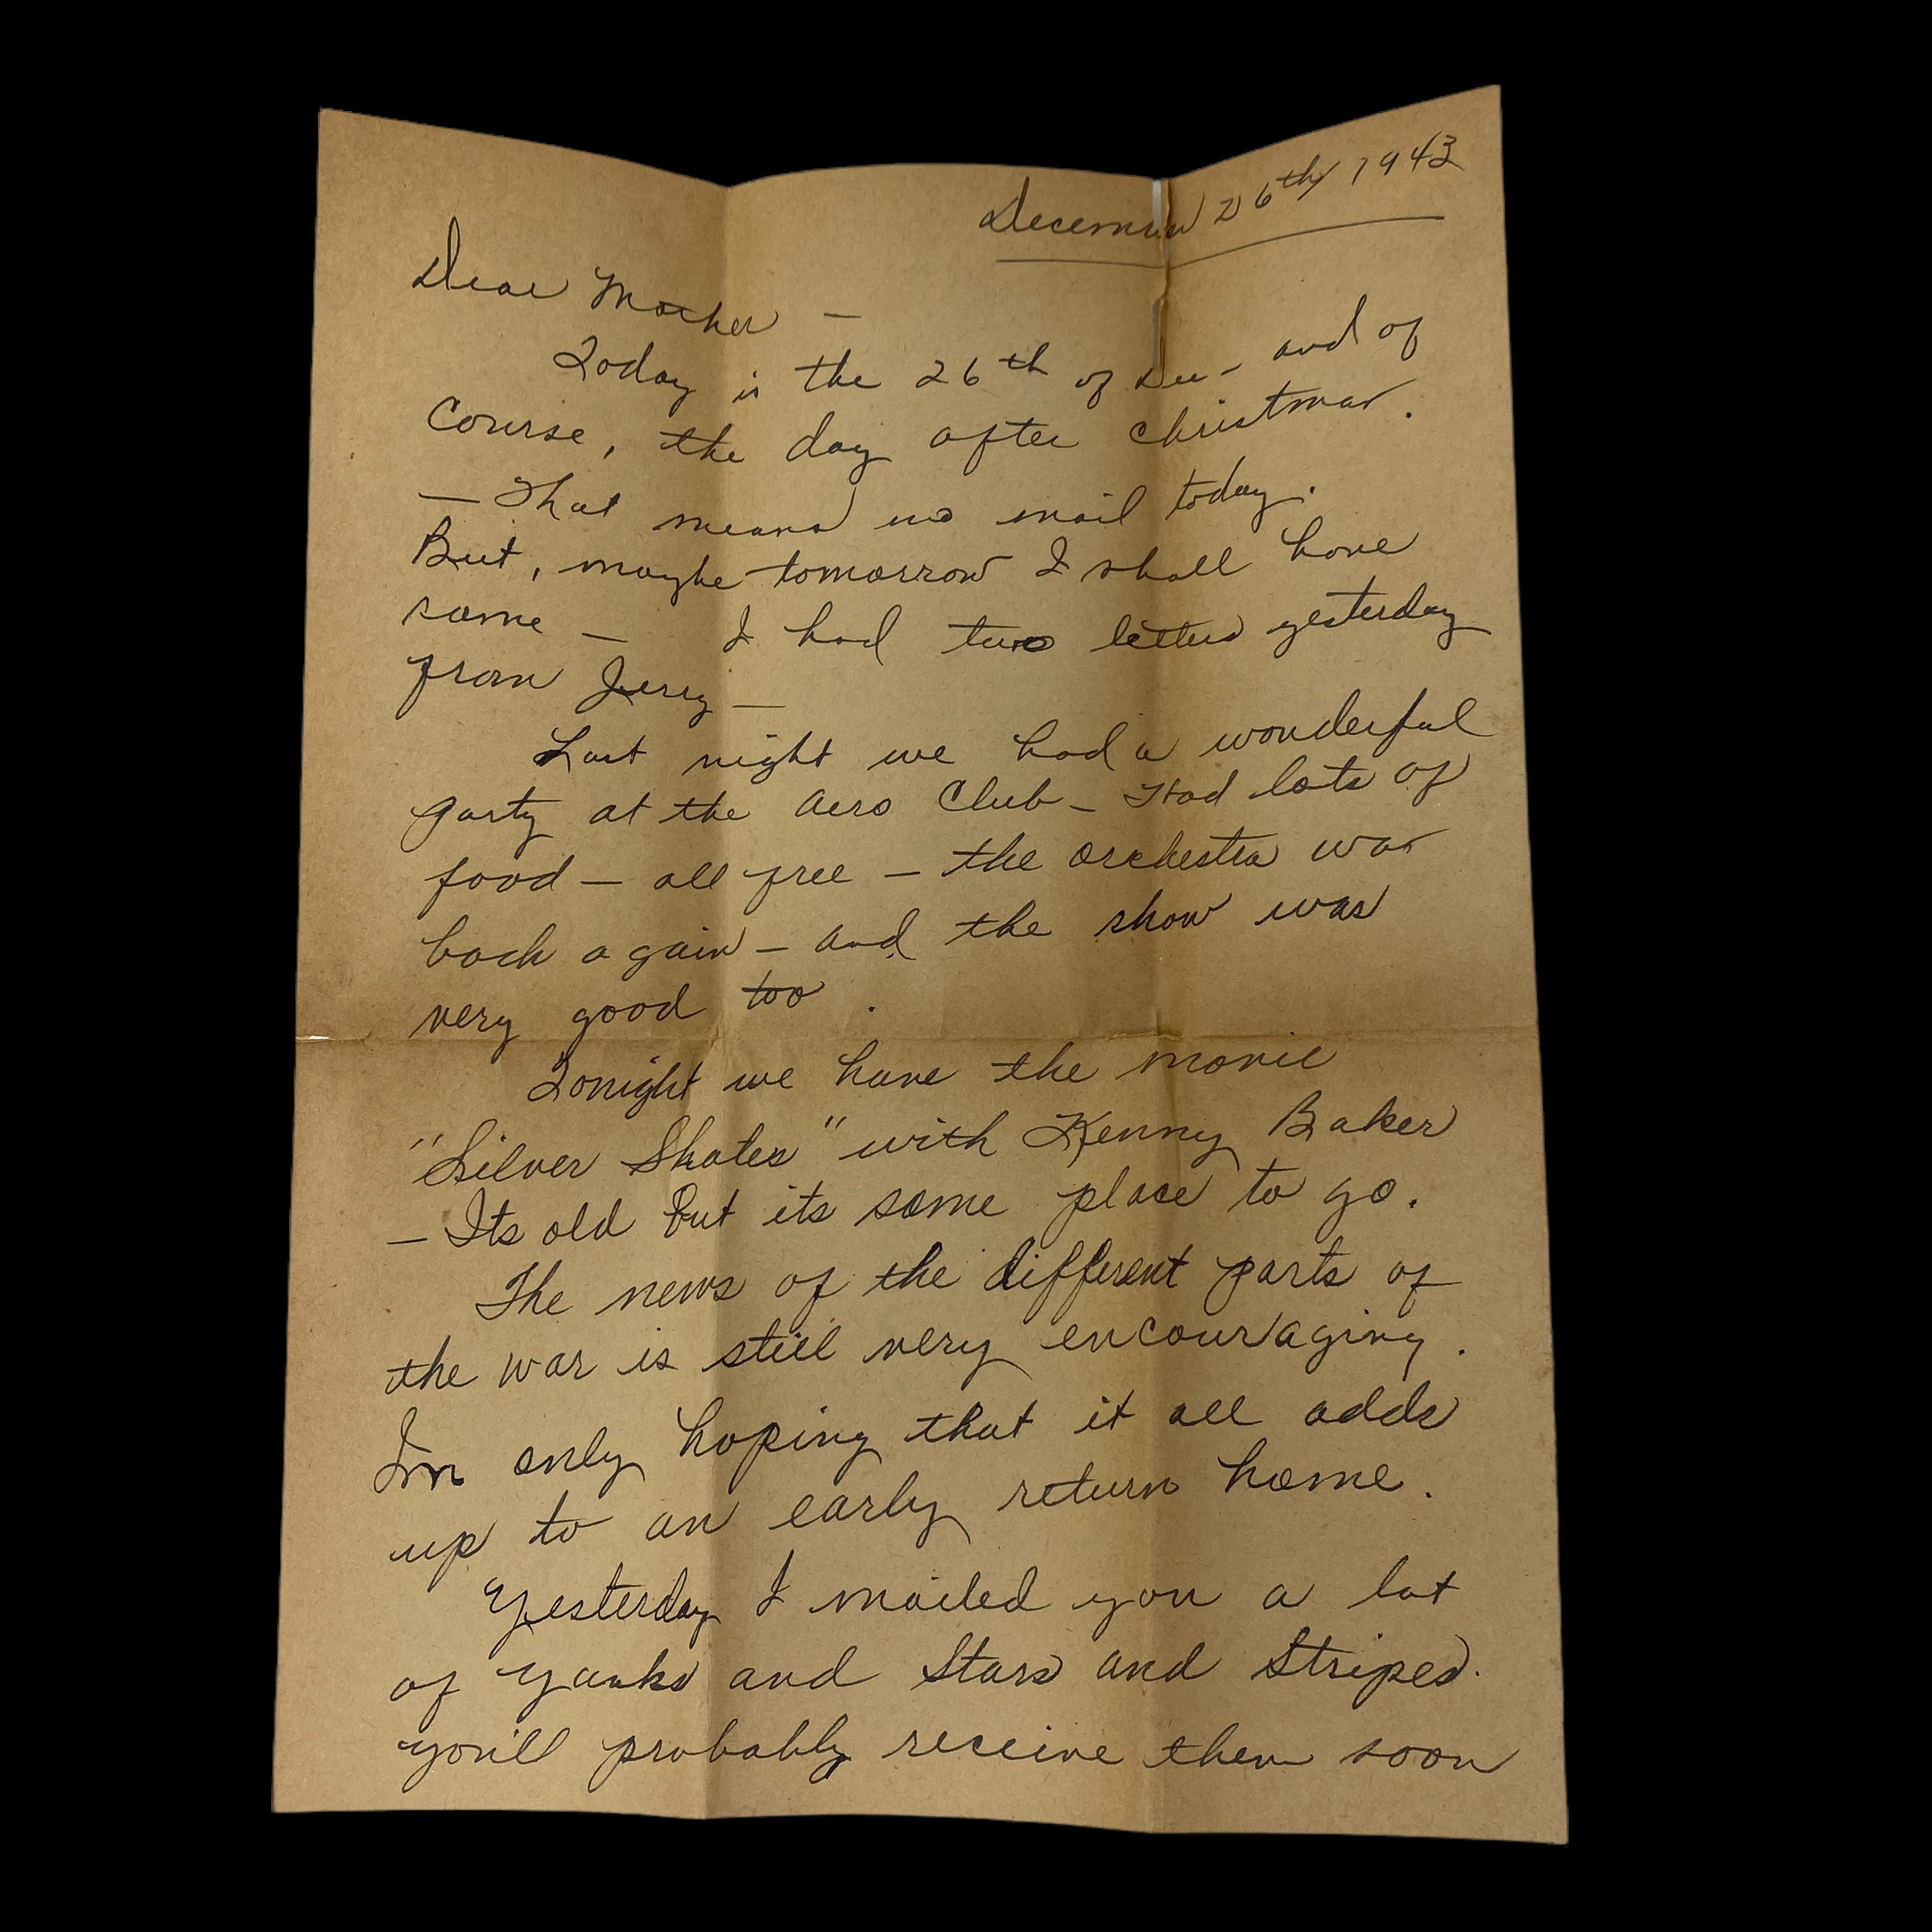 December 26th 1943
Dear Mother —
Today is the 26th of Dec - and of
course, the day after Christmas.
— That means no mail today.
But, maybe tomorrow I shall have
some — I had two letters yesterday
from Jerry —
Last night we had a wonderful
party at the Aero Club — Had lots of
food — all free — the orchestra was
back again — and the show was
very good too.
Tonight we have the movie
"Silver Skates" with Kenny Baker
— Its old but its some place to go.
The news of the different parts of
the war is still very encouraging.
Im only hoping that it all adds
up to an early return home.
Yesterday I mailed you a lot
of Yanks and Stars and Stripes.
you'll probably receive them soon